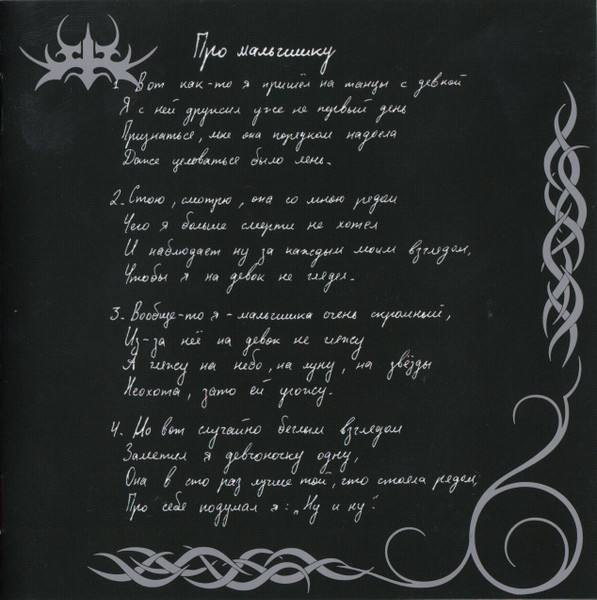 Про мальчишку
1. Вот как-то я пришёл на танцы с девкой
Я с ней дружил уже не первый день
Признаться, мне она порядком надоела
Даже целоваться было лень.
2. Стою, смотрю, она со мною рядом
Чего я больше смерти не хотел
И наблюдает ну за каждым моим взглядом,
Чтобы я на девок не глядел.
3. Вообще-то я - мальчишка очень скромный,
Из-за неё на девок не гляжу
А гляжу на небо, на луну, на звёзды
Неохота, зато ей угожу.
4. Но вот случайно беглым взглядом
Заметил я девчоночку одну,
Она в сто раз лучше той, что стояла рядом,
Про себя подумал я: „Ну и ну".